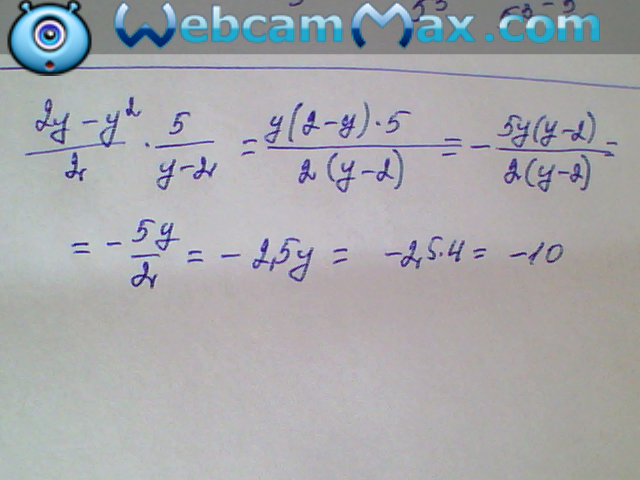 WebcamMax.com
(2y - y²)/2 · 5/(y-2) = (y(2-y)·5)/(2(y-2)) = - (5y(y-2))/(2(y-2)) =
= - 5y/2 = - 2,5y = -2,5·4 = -10